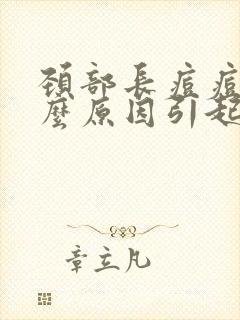 頸部長痘痘
麼原因引起
章立凡